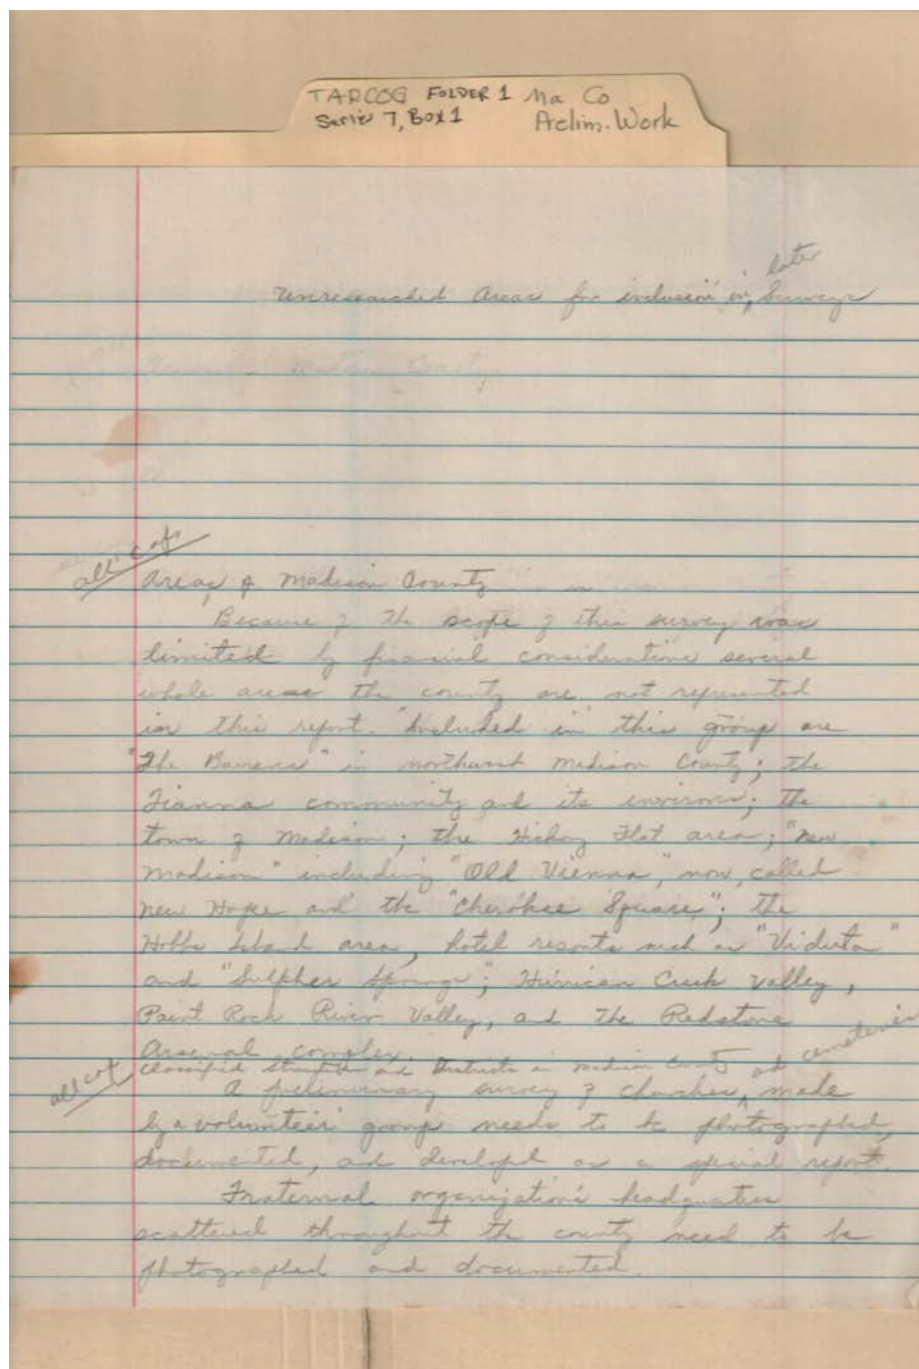 TARCOG FOLDER 1 Ma Co
Series 7, Box 1 Prelim. Work
later
Unresearched Areas for inclusion in Surveys
Madison County
all cap
Areas of Madison County
Because of the scope of this survey was
limited by financial considerations several
whole areas the county are not represented
in this report. Included in this group are
"The Barrens" in northwest Madison County; the
Fianna community and its environs; the
town of Madison; the Hickory Flat area; "New
Madison" including "Old Vienna", now called
New Hope and the "Cherokee Square"; the
Hobbs Island area, hotel resorts such as "Viduta"
and "Sulpher Springs"; Hurrican Creek Valley,
Paint Rock River Valley, and the Redstone
Arsenal complex.
all cap classified structures and Districts in Madison County
and cemeteries
A preliminary survey of churches made
by a volunteer group needs to be photographed,
documented, and developed as a special report.
Fraternal organizations headquarters
scattered throughout the county need to be
photographed and documented.